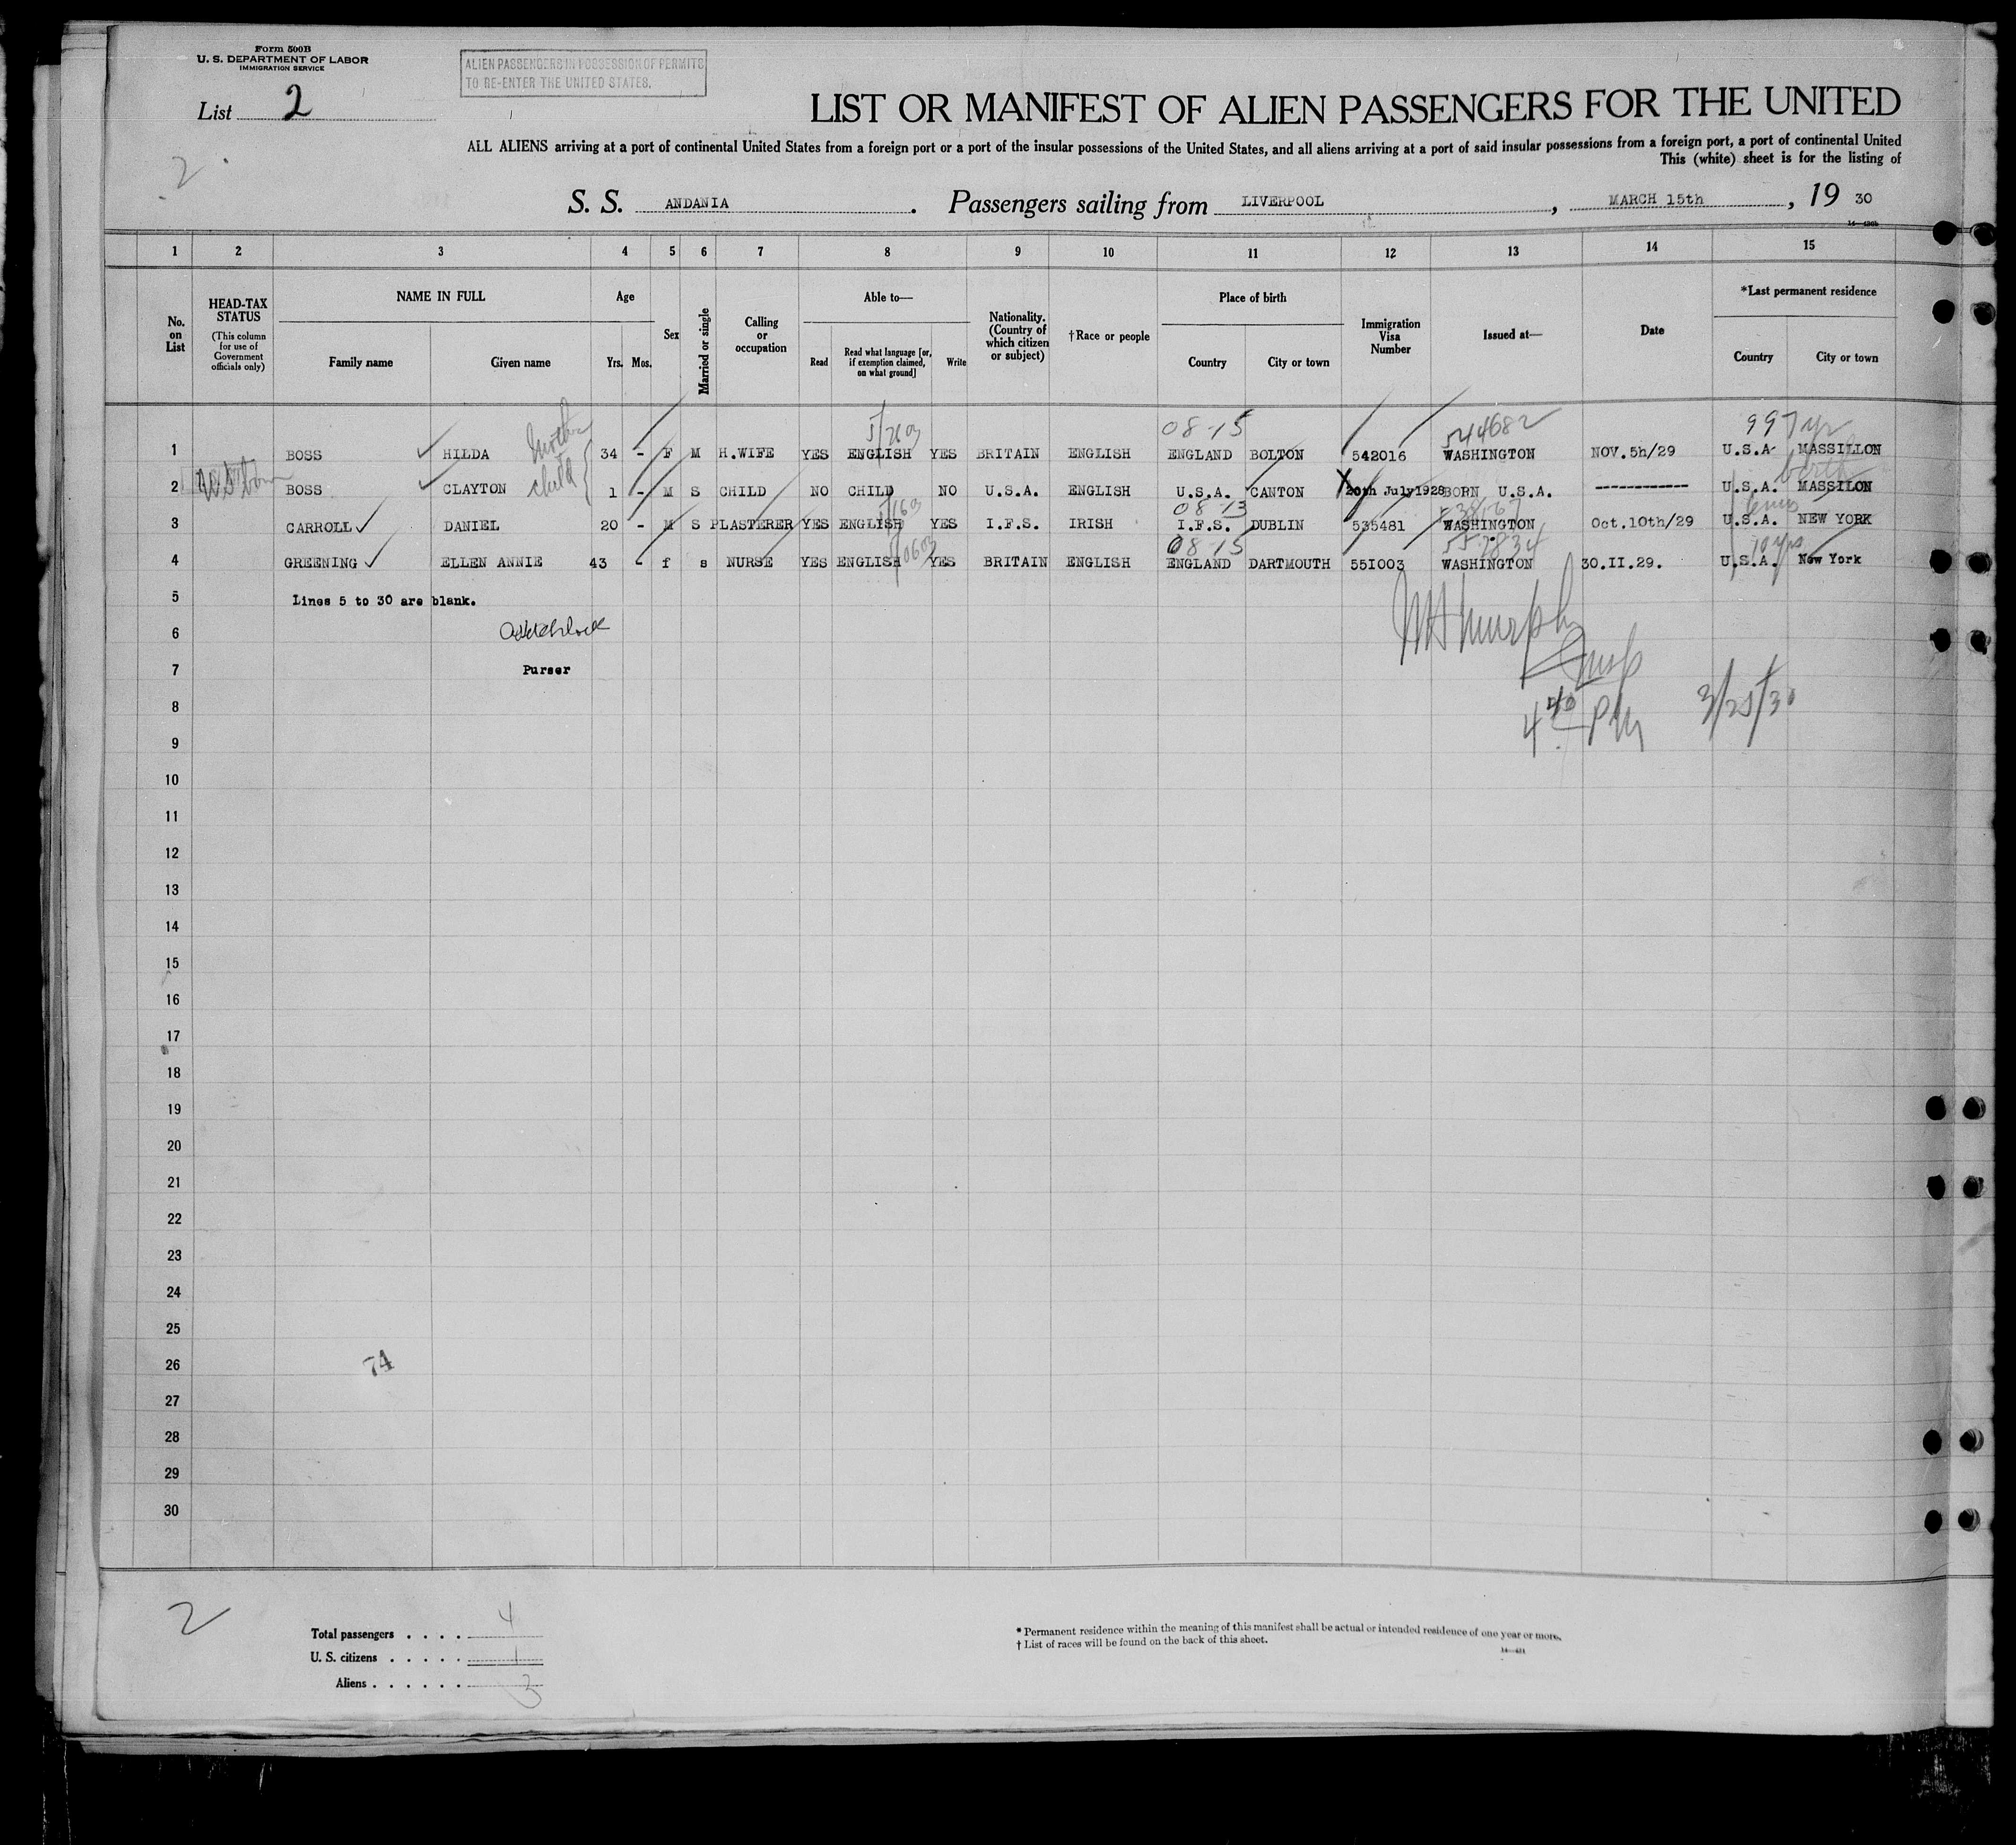 Form 500B
U. S. DEPARTMENT OF LABOR
IMMIGRATION SERVICE
ALIEN PASSENGERS IN POSSESSION OF PERMITS
TO RE-ENTER THE UNITED STATES.
List 2
2
LIST OR MANIFEST OF ALIEN PASSENGERS FOR THE UNITED
ALL ALIENS arriving at a port of continental United States from a foreign port or a port of the insular possessions of the United States, and all aliens arriving at a port of said insular possessions from a foreign port, a port of continental United
This (white) sheet is for the listing of
S. S. ANDANIA. Passengers sailing from LIVERPOOL, MARCH 15th, 19 30
1 2 3 4 5 6 7 8 9 10 11 12 13 14 15
No. on List
HEAD-TAX STATUS (This column for use of Government officials only)
NAME IN FULL Family name Given name
Age Yrs. Mos.
Sex
Married or single
Calling or occupation
Able to— Read Read what language [or, if exemption claimed, on what ground] Write
Nationality. (Country of which citizen or subject)
†Race or people
Place of birth Country City or town
Immigration Visa Number
Issued at—
Date
*Last permanent residence Country City or town
08-15 544682
1 BOSS HILDA Mother 34 - F M H.WIFE YES ENGLISH YES BRITAIN ENGLISH ENGLAND BOLTON 542016 WASHINGTON NOV.5h/29 U.S.A. MASSILLON
2 US born BOSS CLAYTON child 1 - M S CHILD NO CHILD NO U.S.A. ENGLISH U.S.A. CANTON X 20th July1928 BORN U.S.A. ------------ U.S.A. MASSILON
08-13
3 CARROLL DANIEL 20 - M S PLASTERER YES ENGLISH YES I.F.S. IRISH I.F.S. DUBLIN 535481 WASHINGTON Oct.10th/29 U.S.A. NEW YORK
08-15 552834 10 yrs
4 GREENING ELLEN ANNIE 43 - f s NURSE YES ENGLISH YES BRITAIN ENGLISH ENGLAND DARTMOUTH 55I003 WASHINGTON 30.II.29. U.S.A. New York
5 Lines 5 to 30 are blank.
6
7 Purser
Murphy
Insp
4 40 PM 3/25/30
8
9
10
11
12
13
14
15
16
17
18
19
20
21
22
23
24
25
26 74
27
28
29
30
2
Total passengers . . . . 4
U. S. citizens . . . . . 1
Aliens . . . . . . 3
* Permanent residence within the meaning of this manifest shall be actual or intended residence of one year or more.
† List of races will be found on the back of this sheet.